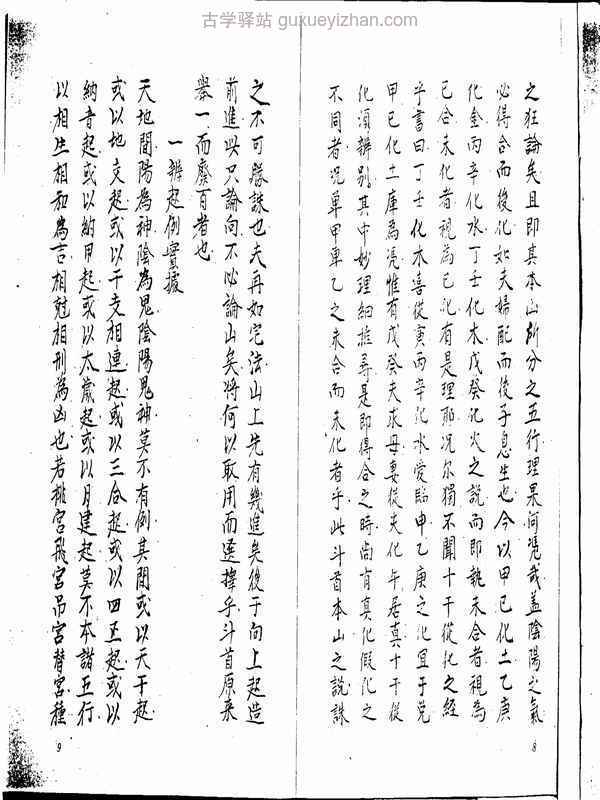 古学驿站 guxueyizhan.com
之狂論矣且即其本山所分之五行理果何憑哉蓋陰陽之氣
必得合而後化如夫婦配而後子息生也今以甲已化土乙庚
化金丙辛化水丁壬化木戊癸化火之說而即執未合者視為
已合未化者視為已化有是理耶况尔獨不聞十干從化之經
乎書曰丁壬化木喜從寅丙辛化水愛臨申乙庚之化宜于兌
甲已化土庫為憑惟有戊癸夫求母妻從夫化午居真十干從
化須辨別其中妙理細推尋是即得合之時尚有真化假化之
不同者况單甲單乙之未合而未化者乎此斗首本山之說誅
8
之不可勝誅也夫再如宅法山上先有幾進矣後于向上起造
前進此只論向不必論山矣將何以取用而選擇乎斗首原来
舉一而廢百者也
一辨起例實據
天地間陽為神陰為鬼陰陽鬼神莫不有例其間或以天干起
或以地支起或以干支相連起或以三合起或以四正起或以
納音起或以納甲起或以太歲起或以月建起莫不本諸五行
以相生相和為言相尅相刑為凶也若排宮飛宮吊宮替宮種
9